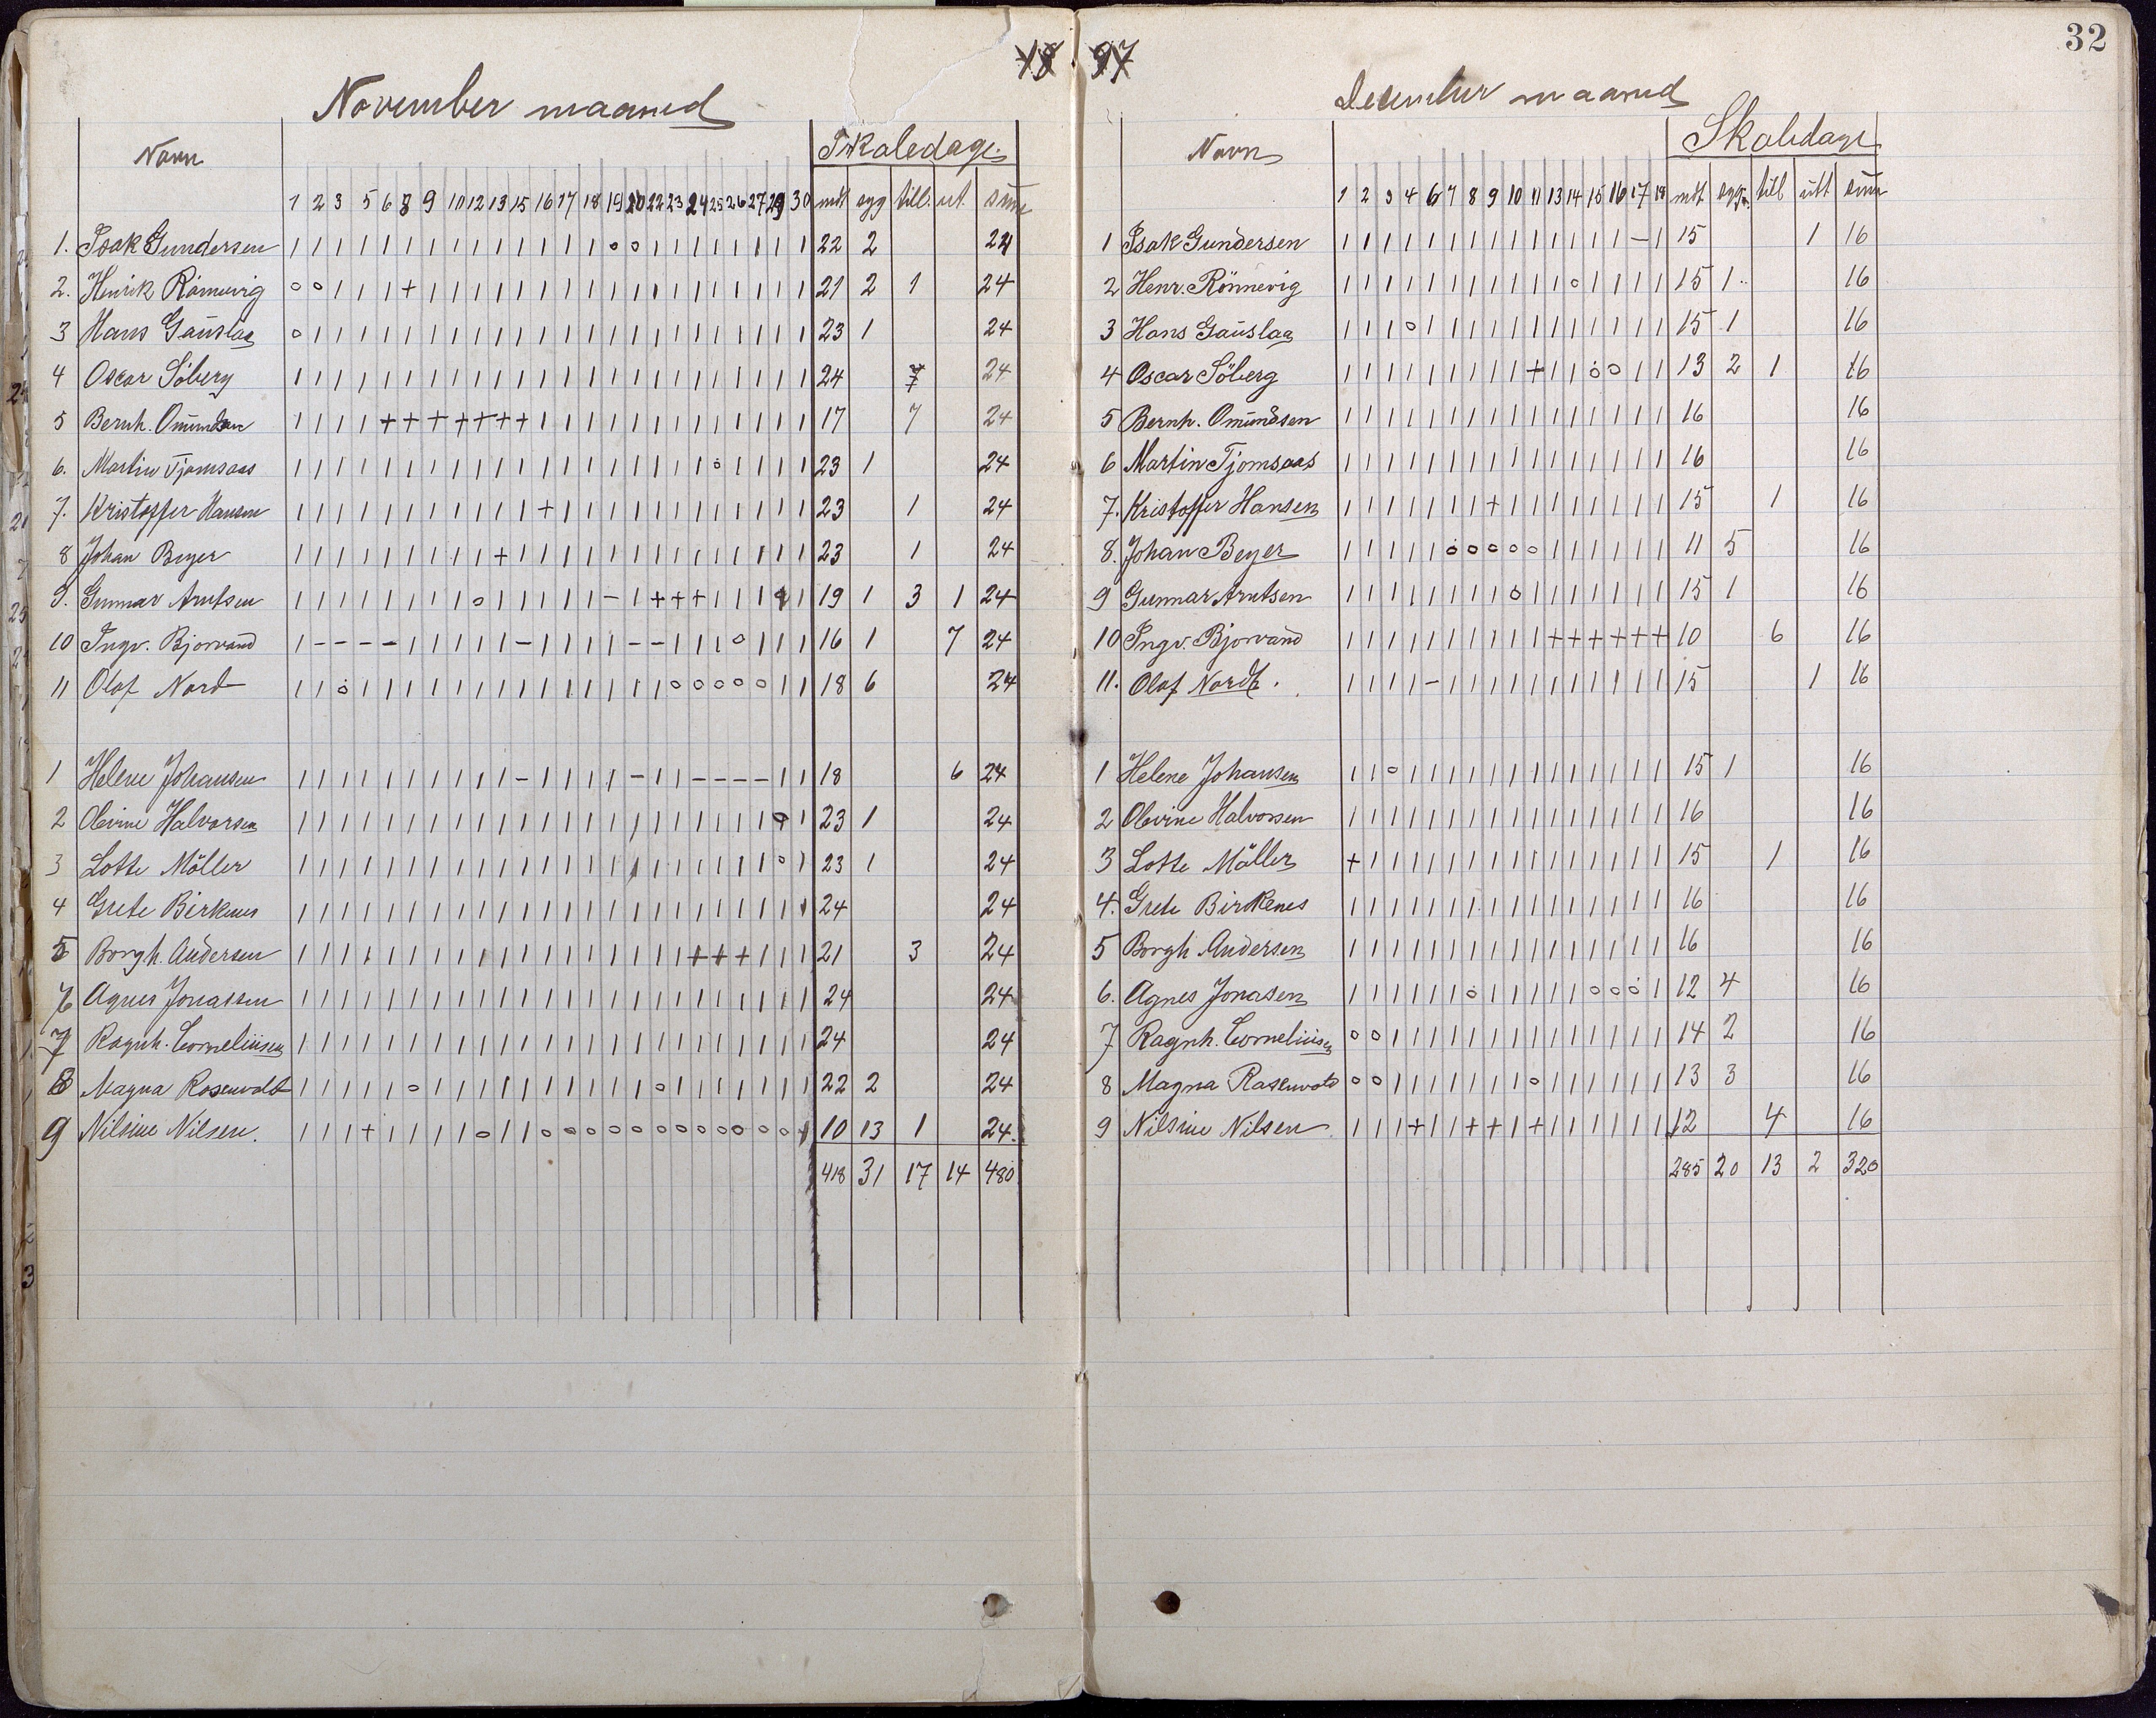 18 97
32
November maaned
Navn Skoledage.
1 2 3 5 6 8 9 10 12 13 15 16 17 18 19 20 22 23 24 25 26 27 29 30 mdt syg till. ut. sum
1. Isak Gundersen | | | | | | | | | | | | | | o o | | | | | | | | 22 2 24
2. Henrik Rönnevig o o | | | + | | | | | | | | | | | | | | | | | | 21 2 1 24
3 Hans Gauslaa o | | | | | | | | | | | | | | | | | | | | | | | 23 1 24
4 Oscar Söberg | | | | | | | | | | | | | | | | | | | | | | | | 24 7 24
5 Bernh. Omundsen | | | | + + + + + + + | | | | | | | | | | | | | 17 7 24
6. Martin Tjomsaas | | | | | | | | | | | | | | | | | | | o | | | | 23 1 24
7. Kristoffer Hansen | | | | | | | | | | | + | | | | | | | | | | | | 23 1 24
8 Johan Beyer | | | | | | | | | + | | | | | | | | | | | | | | 23 1 24
9. Gunnar Arntsen | | | | | | | | o | | | | | - | + + + | | | | | 19 1 3 1 24
10 Ingv. Bjorvand | - - - - | | | | | - | | | | - - | | | o | | | 16 1 7 24
11 Olaf Nord | | o | | | | | | | | | | | | | | o o o o o | | 18 6 24
1 Helene Johansen | | | | | | | | | | - | | | | - | | - - - - | | 18 6 24
2 Olevine Halvorsen | | | | | | | | | | | | | | | | | | | | | | o | 23 1 24
3 Lotte Möller | | | | | | | | | | | | | | | | | | | | | | o | 23 1 24
4 Grete Birkenes | | | | | | | | | | | | | | | | | | | | | | | | 24 24
5 Borgh. Andersen | | | | | | | | | | | | | | | | | | + + + | | | 21 3 24
6 Agnes Jonassen | | | | | | | | | | | | | | | | | | | | | | | | 24 24
7 Ragnh. Corneliusen | | | | | | | | | | | | | | | | | | | | | | | | 24 24
8 Magna Rosenvold | | | | | o | | | | | | | | | | o | | | | | | | 22 2 24
9 Nilsine Nilsen. | | | + | | | | o | | o o o o o o o o o o o o | 10 13 1 24.
418 31 17 14 480
December maaned
Navn Skoledage
1 2 3 4 6 7 8 9 10 11 13 14 15 16 17 18 mdt. sygd. till utt sum
1 Isak Gundersen | | | | | | | | | | | | | | - | 15 1 16
2 Henr. Rönnevig | | | | | | | | | | | o | | | | 15 1 16
3 Hans Gauslaa | | | o | | | | | | | | | | | | 15 1 16
4 Oscar Söberg | | | | | | | | | + | | o o | | 13 2 1 16
5 Bernh. Omundsen | | | | | | | | | | | | | | | | 16 16
6 Martin Tjomsaas | | | | | | | | | | | | | | | | 16 16
7. Kristoffer Hansen | | | | | | | + | | | | | | | | 15 1 16
8. Johan Beyer | | | | | o o o o o | | | | | | 11 5 16
9 Gunnar Arntsen | | | | | | | | o | | | | | | | 15 1 16
10 Ingv. Bjorvand | | | | | | | | | | + + + + + + 10 6 16
11. Olaf Nord. | | | | - | | | | | | | | | | | 15 1 16
1 Helene Johansen | | o | | | | | | | | | | | | | 15 1 16
2 Olevine Halvorsen | | | | | | | | | | | | | | | | 16 16
3 Lotte Möller + | | | | | | | | | | | | | | | 15 1 16
4. Grete Birkenes | | | | | | | | | | | | | | | | 16 16
5 Borgh Andersen | | | | | | | | | | | | | | | | 16 16
6. Agnes Jonasen | | | | | | o | | | | | o o o | 12 4 16
7 Ragnh. Corneliusen o o | | | | | | | | | | | | | | 14 2 16
8 Magna Rosenvold o o | | | | | | | o | | | | | | 13 3 16
9 Nilsine Nilsen. | | | + | | + + | + | | | | | | 12 4 16
285 20 13 2 320